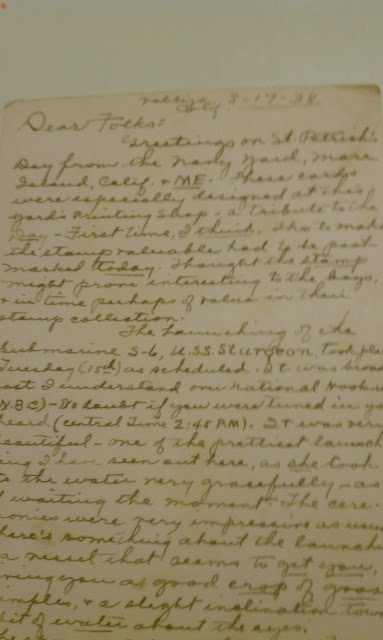 Vallejo
Calif 3-17-38
Dear Folks:
Greetings on St. Patrick's
Day from the Navy Yard, Mare
Island, Calif. & ME. These cards
were especially designed at this
yard's Printing Shop - a tribute to the
Day - First time, I think. Tho to make
the stamp valuable had to be post
marked today. Thought the stamp
might prove interesting to the boys,
& in time perhaps of value in their
stamp collection.
The launching of the
Submarine S-6, U.S.S. Sturgeon, took pla
Tuesday (15th) as scheduled. It was broad
cast I understand over National Hookup
(N.B.C) - No doubt if you were tuned in you
heard (Central Time 2:45 P.M). It was very
beautiful - one of the prettiest launch
ing I have seen out here, as she took
to the water very gracefully - as
if waiting the moment. The cere-
monies were very impressive as usual
there's something about the launching
a vessel that seems to get you,
bring you a good crop of goose
pimples, & a slight inclination tow
bit of water about the eyes.